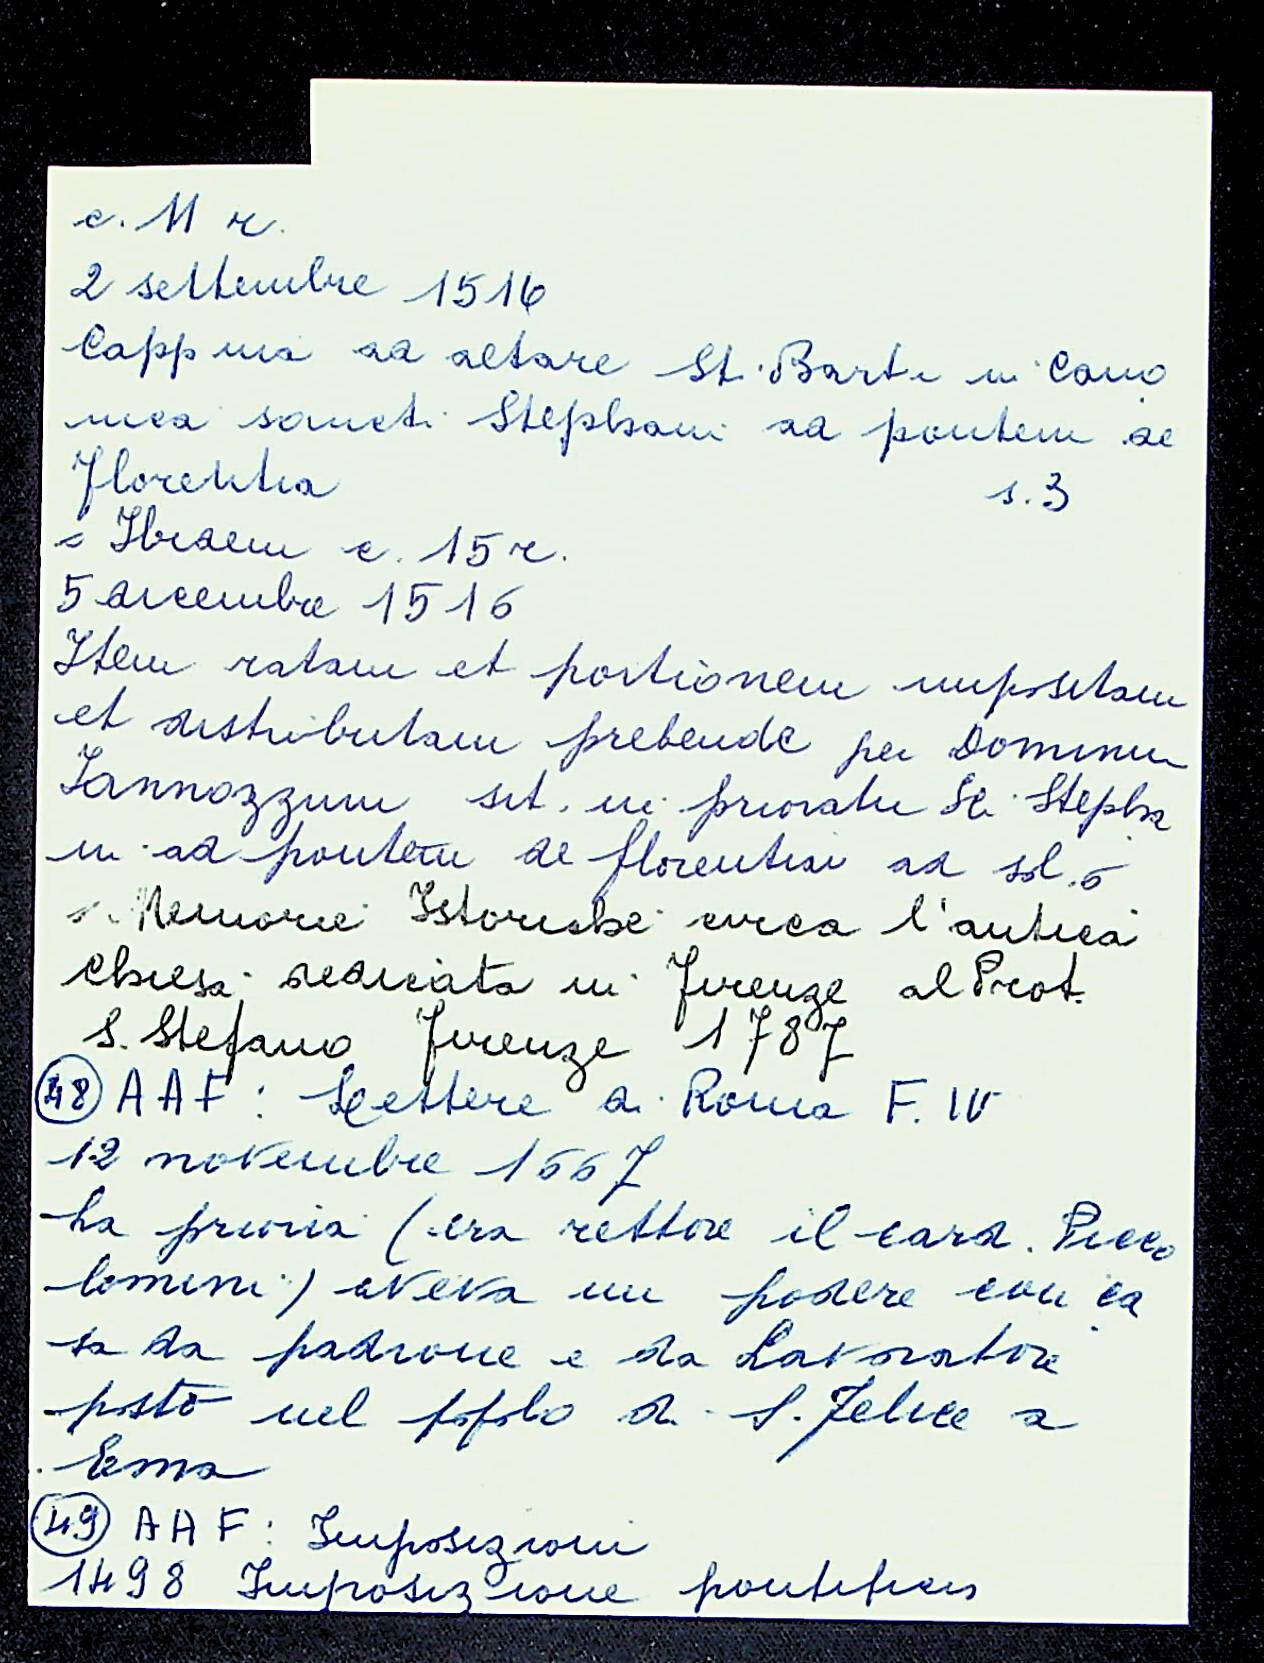 c. 11 r.
2 settembre 1516
Capp nia ad altare St. Barti in Cano
nica sancti Stephani ad pontem de
Florentia s. 3
= Ibidem c. 15 r.
5 dicembre 1516
Item ratam et portionem impositam
et distributam prebende per Dominum
Iannozzum sit. in prioratu Sti Stepha
ni ad pontem de florentia ad sol. 6
Memorie Istoriche circa l'antica
chiesa dedicata in Firenze al Prot.
S. Stefano Firenze 1787
48 AAF: Lettere di Roma F. IV
12 novembre 1667
La prioria (era rettore il card. Picco
lomini) aveva un podere con ca
sa da padrone e da Lavoratore
posto nel popolo di S. Felice a
Ema
49 AAF: Imposizioni
1498 Imposizione pontificia